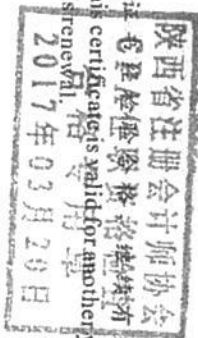 陕西省注册会计师协会
证书经检验合格，继续有
his certificate is valid for another y
s renewal.
2017年03月20日